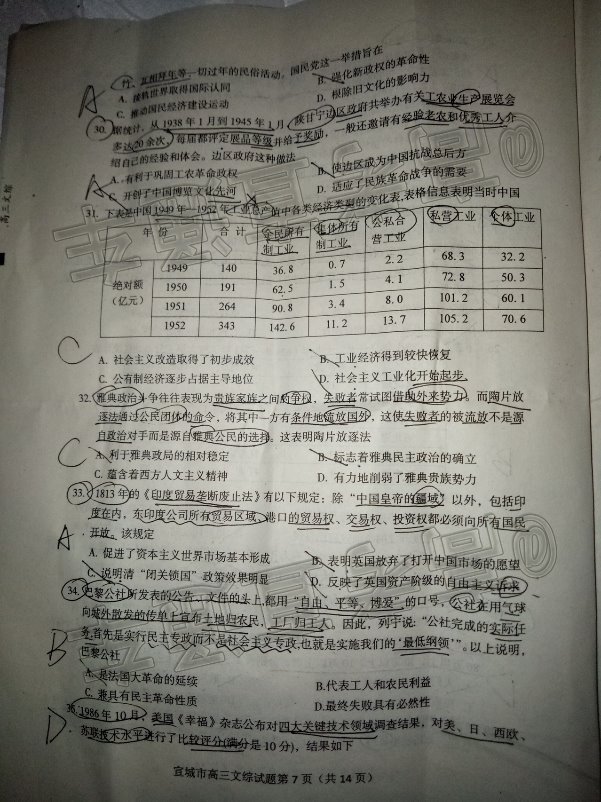 竹、互相拜年等一切过年的民俗活动。国民党这一举措旨在
A. 按轨世界取得国际认同
B. 强化新政权的革命性
C. 推动国民经济建设运动
D. 根除旧文化的影响力
A
30. 据统计，从1938年1月到1945年1月，陕甘宁边区政府共举办有关工农业生产展览会
多达20余次，每届都评定展品等级并给予奖励，一般还邀请有经验老农和优秀工人介
绍自己的经验和体会。边区政府这种做法
A. 有利于巩固工农革命政权
B. 使边区成为中国抗战总后方
C. 开创了中国博览文化先河
D. 适应了民族革命战争的需要
A
31. 下表是中国1949年—1952年工业总产值中各类经济类型的变化表，表格信息表明当时中国
年份 合计 全民所有制工业 集体所有制工业 公私合营工业 私营工业 个体工业
绝对额（亿元）
1949 140 36.8 0.7 2.2 68.3 32.2
1950 191 62.5 1.5 4.1 72.8 50.3
1951 264 90.8 3.4 8.0 101.2 60.1
1952 343 142.6 11.2 13.7 105.2 70.6
C
A. 社会主义改造取得了初步成效
B. 工业经济得到较快恢复
C. 公有制经济逐步占据主导地位
D. 社会主义工业化开始起步
32. 雅典政治斗争往往表现为贵族家族之间的争权，失败者常试图借助外来势力。而陶片放
逐法通过公民团体的命令，将其中一方有条件地流放国外，这使失败者的被流放不是源
自政治对手而是源自雅典公民的选择。这表明陶片放逐法
C
A. 利于雅典政局的相对稳定
B. 标志着雅典民主政治的确立
C. 蕴含着西方人文主义精神
D. 有力地削弱了雅典贵族势力
33. 1813年的《印度贸易垄断废止法》有以下规定：除“中国皇帝的疆域”以外，包括印
度在内，东印度公司所有贸易区域、港口的贸易权、交易权、投资权都必须向所有国民
开放。该规定
A
A. 促进了资本主义世界市场基本形成
B. 表明英国放弃了打开中国市场的愿望
C. 说明清“闭关锁国”政策效果明显
D. 反映了英国资产阶级的自由主义诉求
34. 巴黎公社所发表的公告、文件的头上，都用“自由、平等、博爱”的口号，公社在用气球
向城外散发的传单上宣布土地归农民，工厂归工人。因此，列宁说：“公社完成的实际任
务首先是实行民主专政而不是社会主义专政，也就是实施我们的‘最低纲领’”。以上说明，
巴黎公社
B
A. 是法国大革命的延续
B.代表工人和农民利益
C. 兼具有民主革命性质
D.最终失败具有必然性
35. 1986年10月，美国《幸福》杂志公布对四大关键技术领域调查结果，对美、日、西欧、
苏联技术水平进行了比较评分(满分是10分)，结果如下
D
宣城市高三文综试题第 7 页（共 14 页）
高三文综